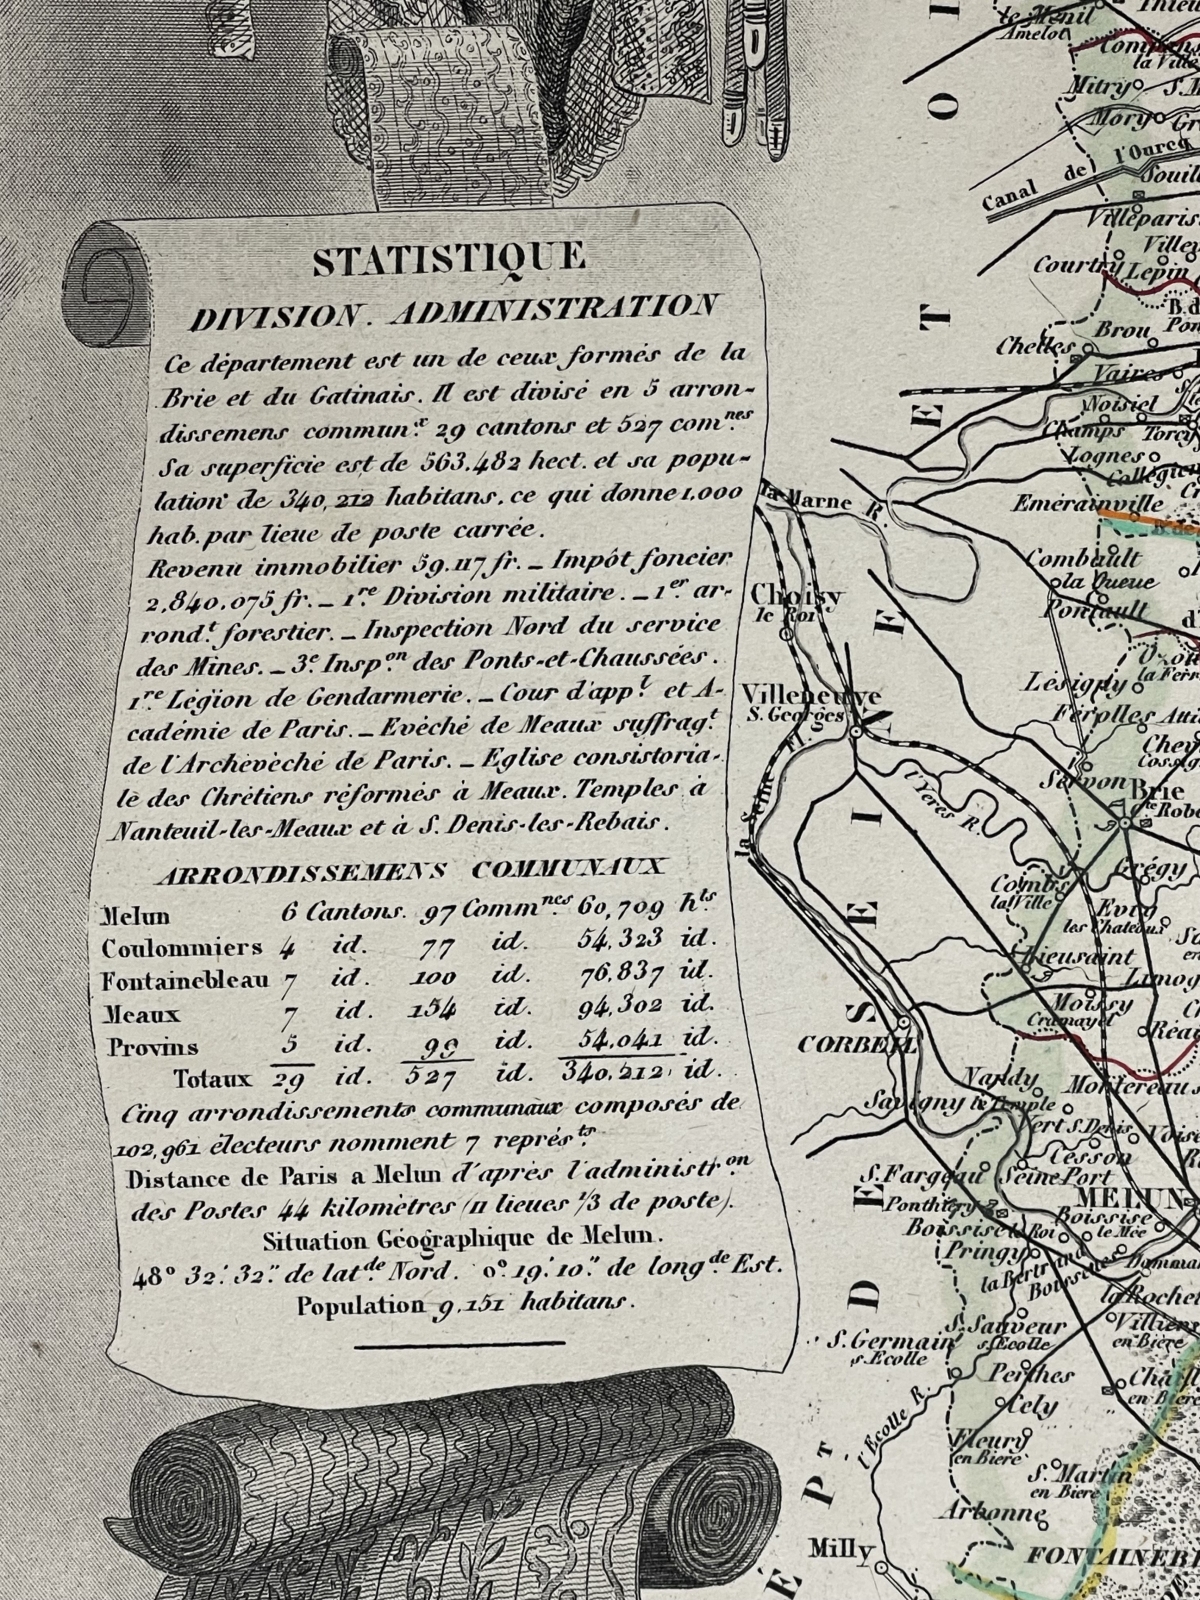 STATISTIQUE
DIVISION. ADMINISTRATION
Ce département est un de ceux formés de la
Brie et du Gatinais. Il est divisé en 5 arron-
dissemens commun.x 29 cantons et 527 com.nes
Sa superficie est de 563,482 hect. et sa popu-
lation de 340,212 habitans, ce qui donne 1,000
hab. par lieue de poste carrée.
Revenu immobilier 59.117 fr. _ Impôt foncier
2,840,075 fr. _ 1.re Division militaire. _ 1.er ar-
rond.t forestier. _ Inspection Nord du service
des Mines. _ 3.e Insp.on des Ponts-et-Chaussées.
1.re Légion de Gendarmerie. _ Cour d'app.l et A-
cadémie de Paris. _ Evêché de Meaux suffrag.t
de l'Archevêché de Paris. _ Eglise consistoria-
le des Chrétiens réformés à Meaux. Temples à
Nanteuil-les-Meaux et à S. Denis-les-Rebais.
ARRONDISSEMENS COMMUNAUX
Melun 6 Cantons. 97 Comm.nes 60,709 h.ts
Coulommiers 4 id. 77 id. 54,323 id.
Fontainebleau 7 id. 100 id. 76,837 id.
Meaux 7 id. 154 id. 94,302 id.
Provins 5 id. 99 id. 54,041 id.
Totaux 29 id. 527 id. 340,212 id.
Cinq arrondissements communaux composés de
102,961 électeurs nomment 7 représ.ts
Distance de Paris a Melun d'après l'administr.on
des Postes 44 kilomètres (11 lieues 1/3 de poste).
Situation Géographique de Melun.
48° 32.' 32." de lat.de Nord. 0° 19.' 10." de long.de Est.
Population 9,151 habitans.
le Ménil
Amelot
Thieu
Compans
la Ville
Mitry
Mory
Gr
Canal de l'Ourcq
Souil
Villeparis
Ville
Courtry
Lepin
B.d
Pon
Brou
Chelles
Vaires
Noisiel
Champs
Torcy
Lognes
Collégien
la Marne R.
Emérainville
Combault
la Queue
Pontault
Choisy
le Roi
Lésigny
la Ferr
Villeneuve
S. Georges
Férolles
Chev
Cossig
Servon
Brie
Cte Robe
la Seine Fl.
l'Yères R.
Grégy
Combs
la Ville
Evry
les Chateaux
Lieusaint
Limog
Moissy
Cramayel
Réau
CORBEIL
Nandy
Montereau s
Savigny le Temple
Vert S. Denis
Voise
Cesson
S. Fargeau
Seine Port
MELUN
Ponthiery
Boissise le Roi
Boissise
le Mée
Pringy
la Bertrand
Boissise
Dammar
la Rochet
Villiers
en Bière
S. Sauveur
s. Ecolle
S. Germain
s. Ecolle
Perthes
Chaill
en Bière
Cely
l'Ecolle R.
Fleury
en Bière
S. Martin
en Bière
Arbonne
Milly
FONTAINEBL
DÉPT DE SEINE ET O